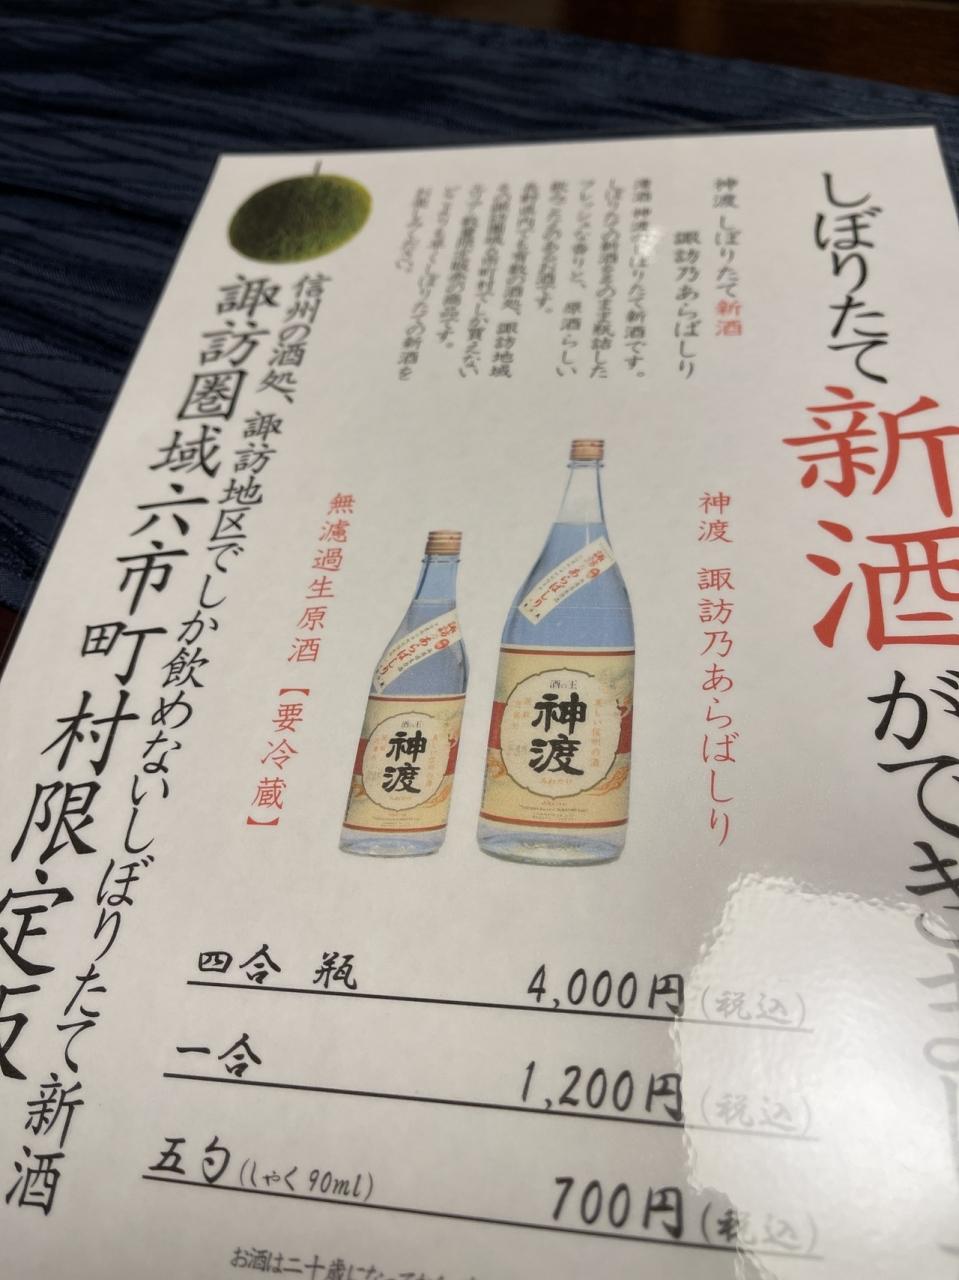 しぼりたて
新酒
ができ
神渡 しぼりたて新酒
諏訪乃あらばしり
清酒 神渡のしぼりたて新酒です。
しぼりたての新酒をそのまま瓶詰した
フレッシュな香りと、原酒らしい
飲みごたえのあるお酒です。
長野県内でも有数の酒処、諏訪地域
お楽しみください。
神渡 諏訪乃あらばしり
諏訪乃あらばしり
酒の王
神渡
みわたり
美しい信州の酒
諏訪乃あらばしり
酒の王
神渡
みわたり
無濾過生原酒 【要冷蔵】
信州の酒処、諏訪地区でしか飲めないしぼりたて新酒
諏訪圏域六市町村限定販
四合 瓶 4,000円(税込)
一合 1,200円(税込)
五勺(しゃく 90ml) 700円(税込)
お酒は二十歳になって